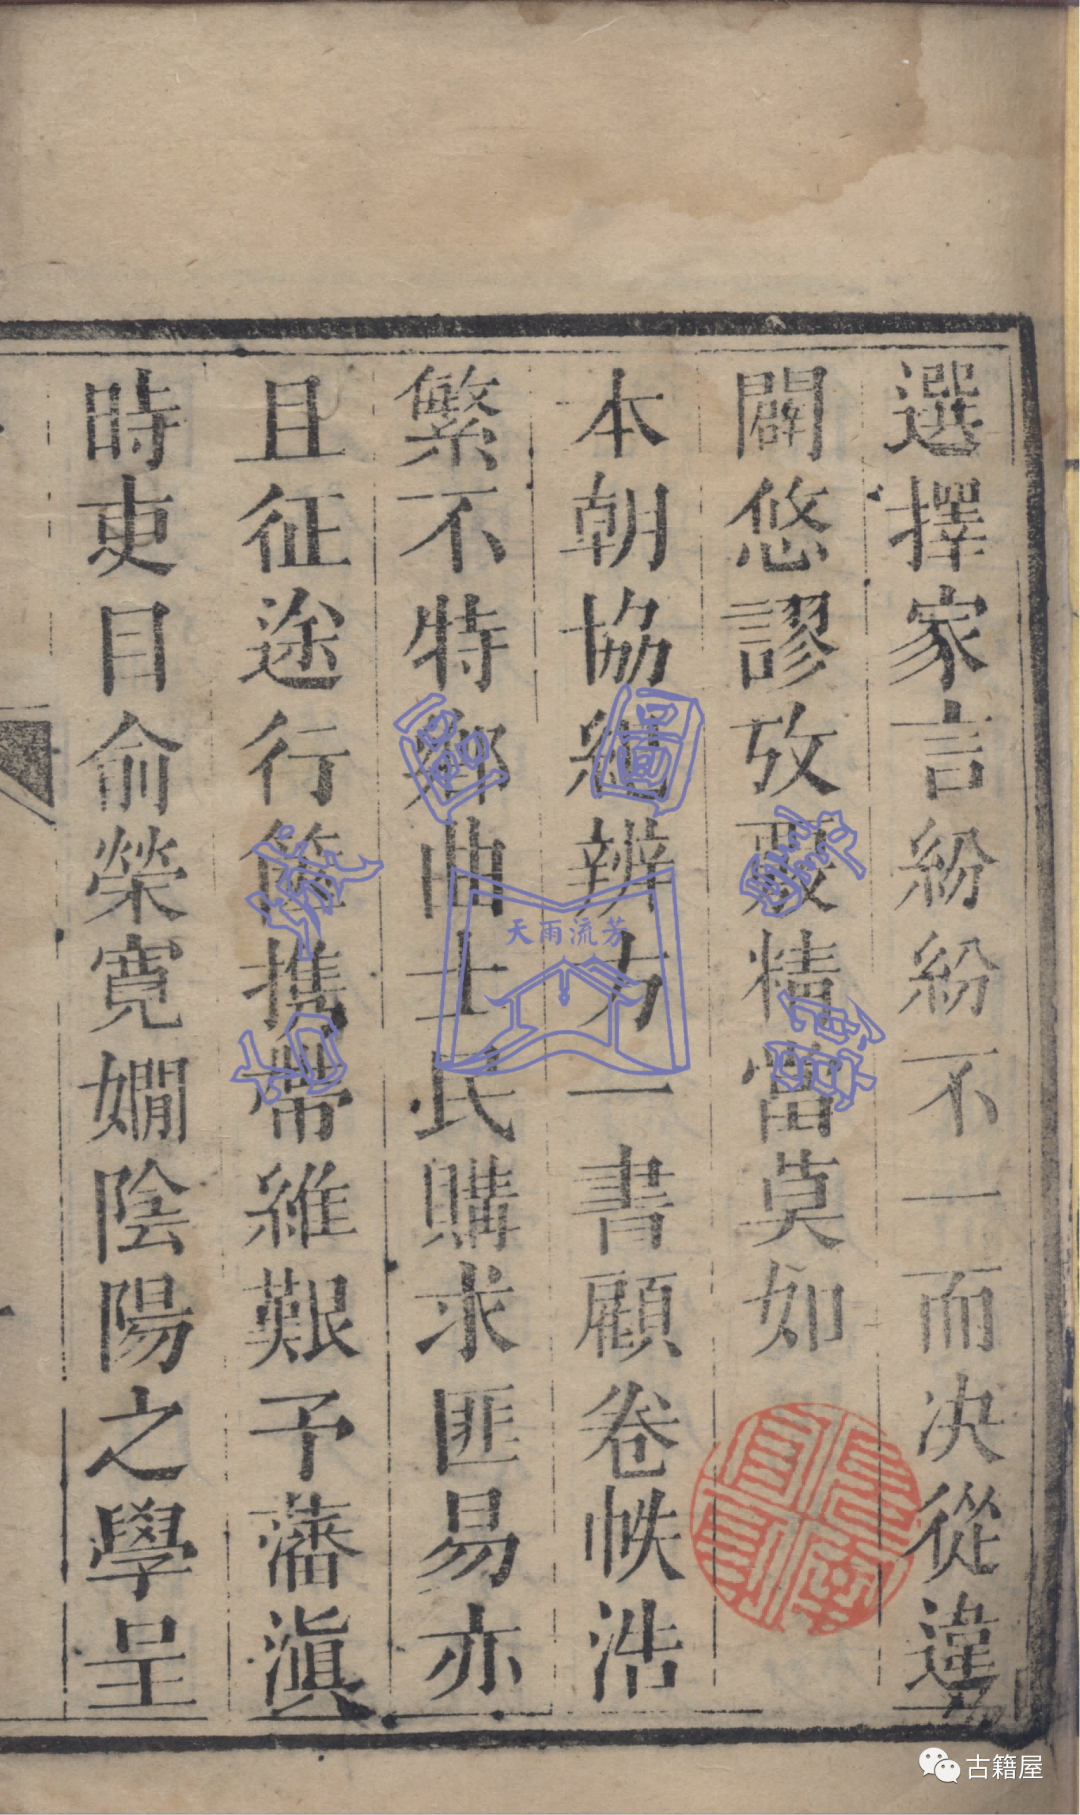 選擇家言紛紛不一而决從違
闢悠謬攷覈精當莫如
本朝協紀辨方一書顧卷帙浩
繁不特鄉曲士民購求匪易亦
且征途行篋携帶維艱予藩滇
時吏目俞榮寛嫺陰陽之學呈
天雨流芳
古籍屋